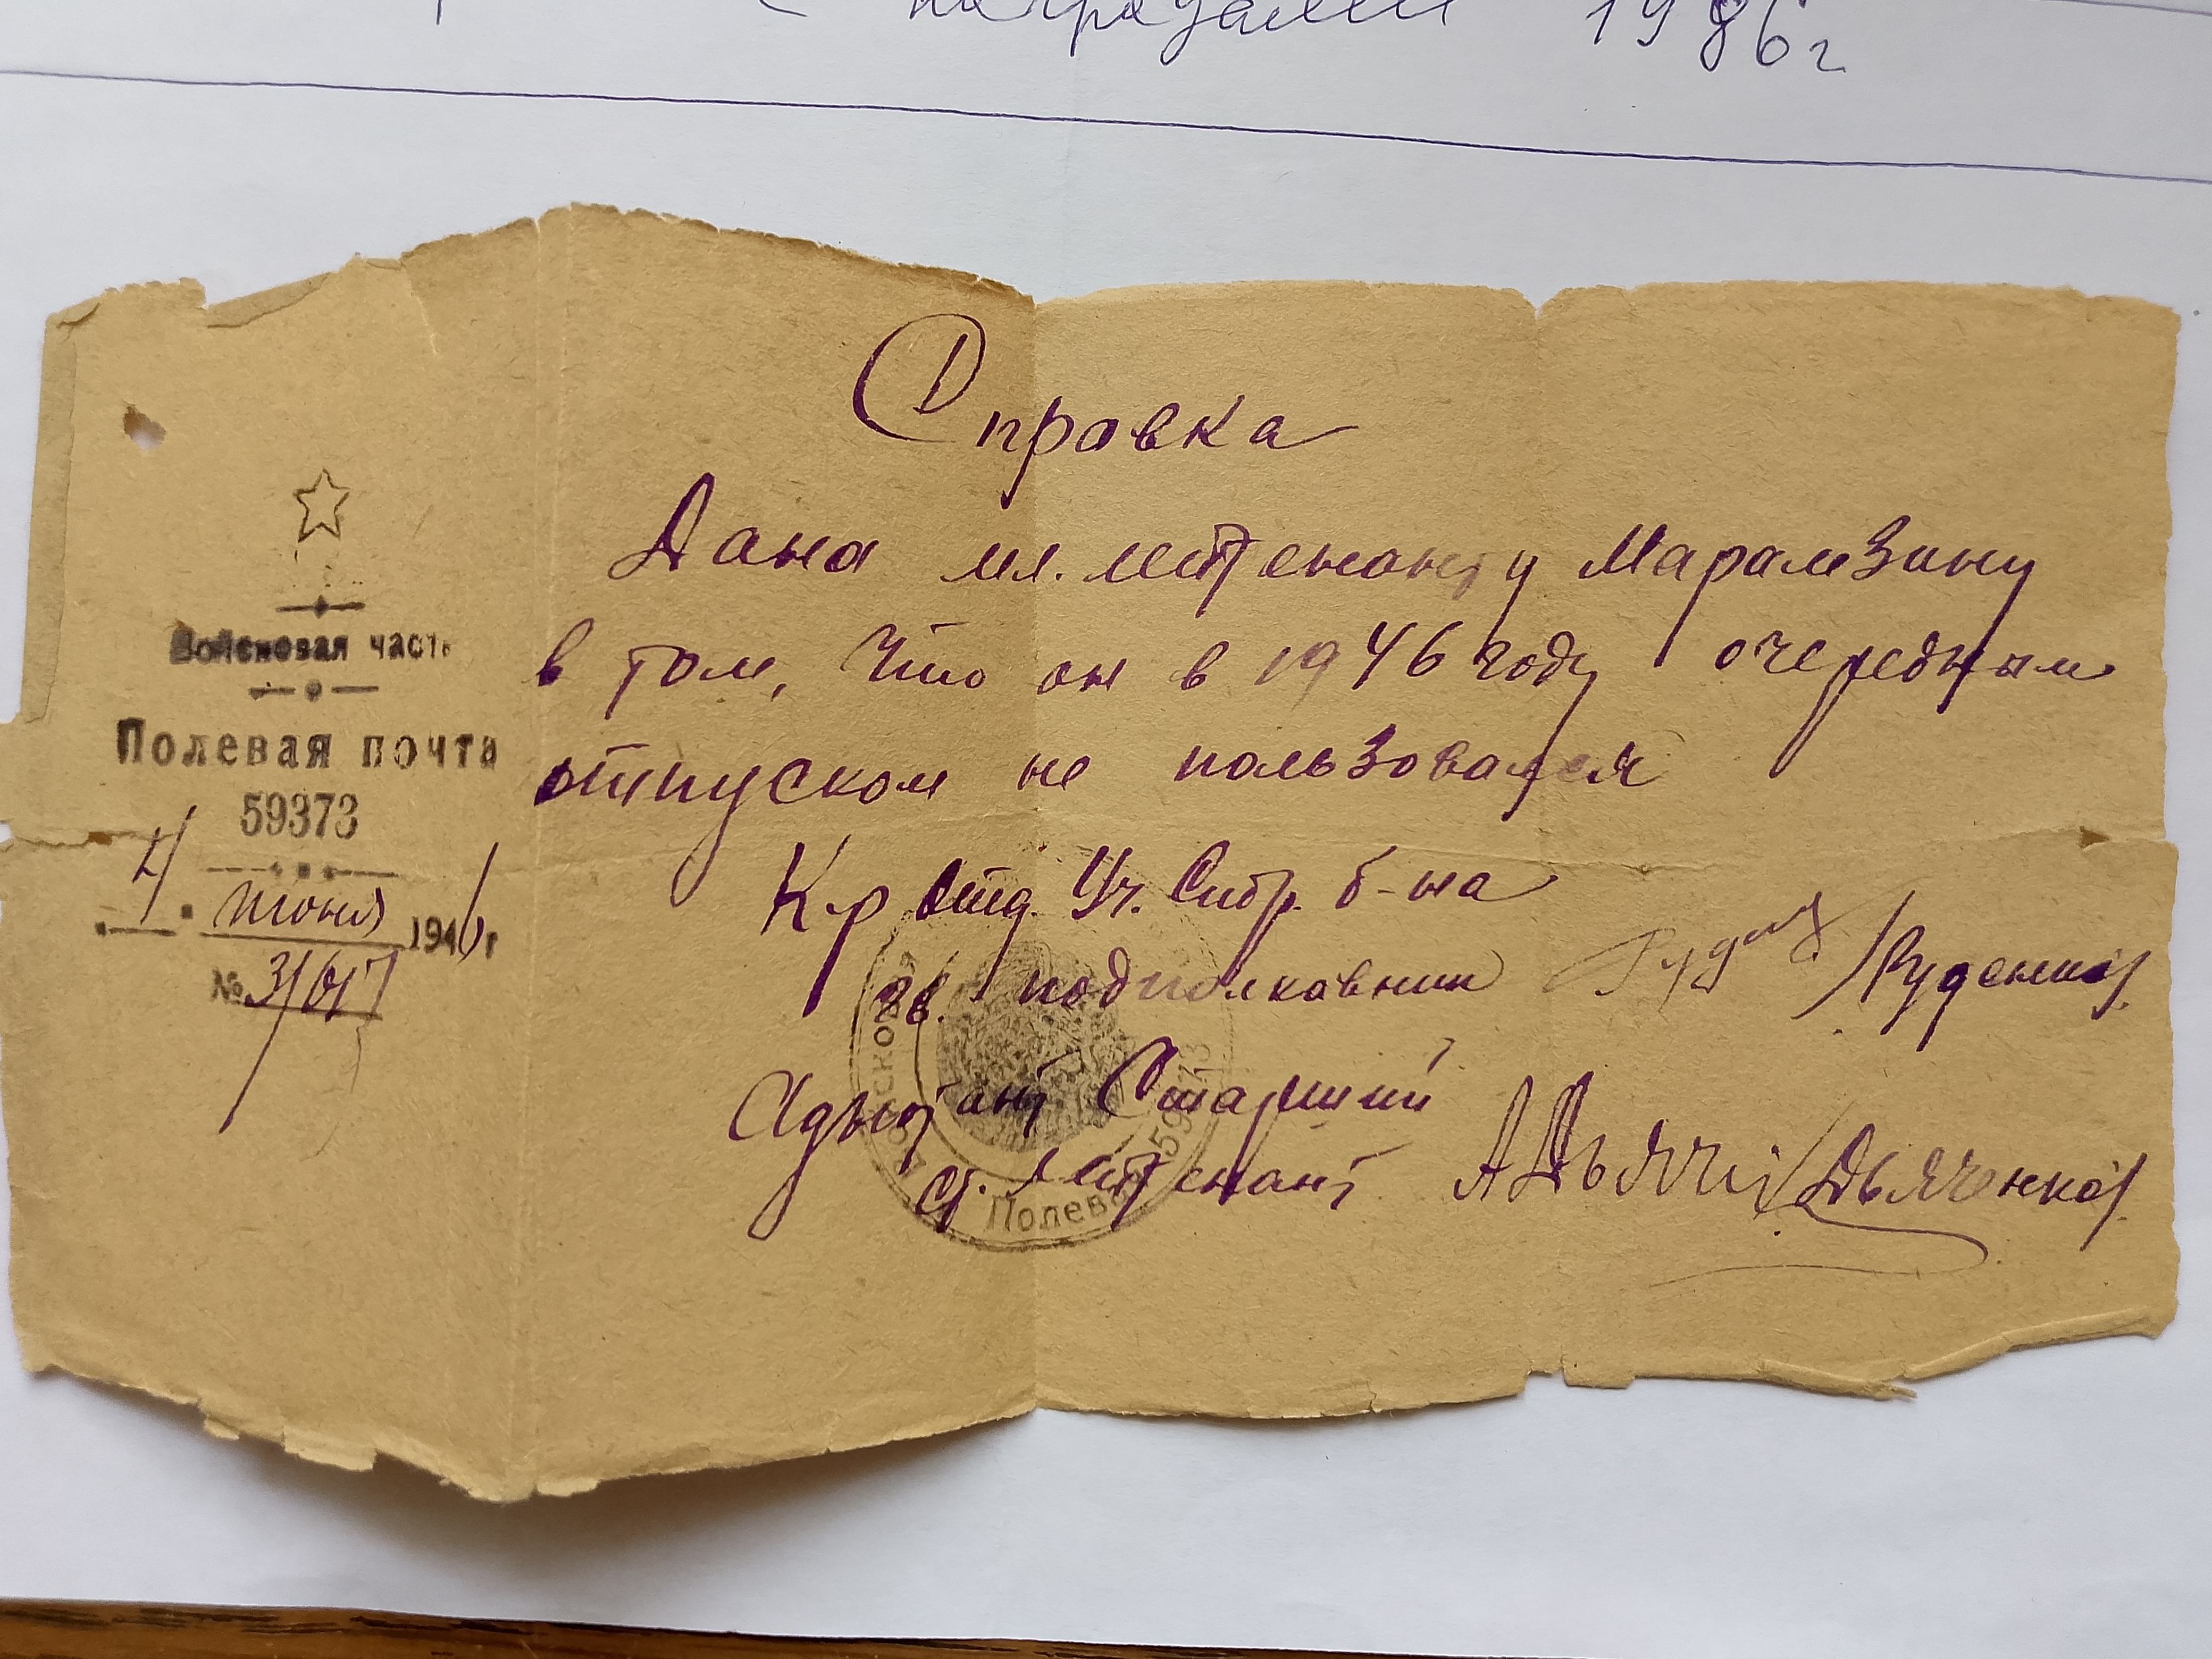 наградами 1986г
Войсковая часть
Полевая почта
59373
4 июня 1946г
№
Справка
Дана мл. лейтенанту Марамзину
в том, что он в 1946 году очередным
отпуском не пользовался
К-р отд. Уч. б-на
гв. подполковник /Руденко/.
Адъютант Старший
ст. лейтенант АДьяч /Дьяченко/.
Полевая 59373